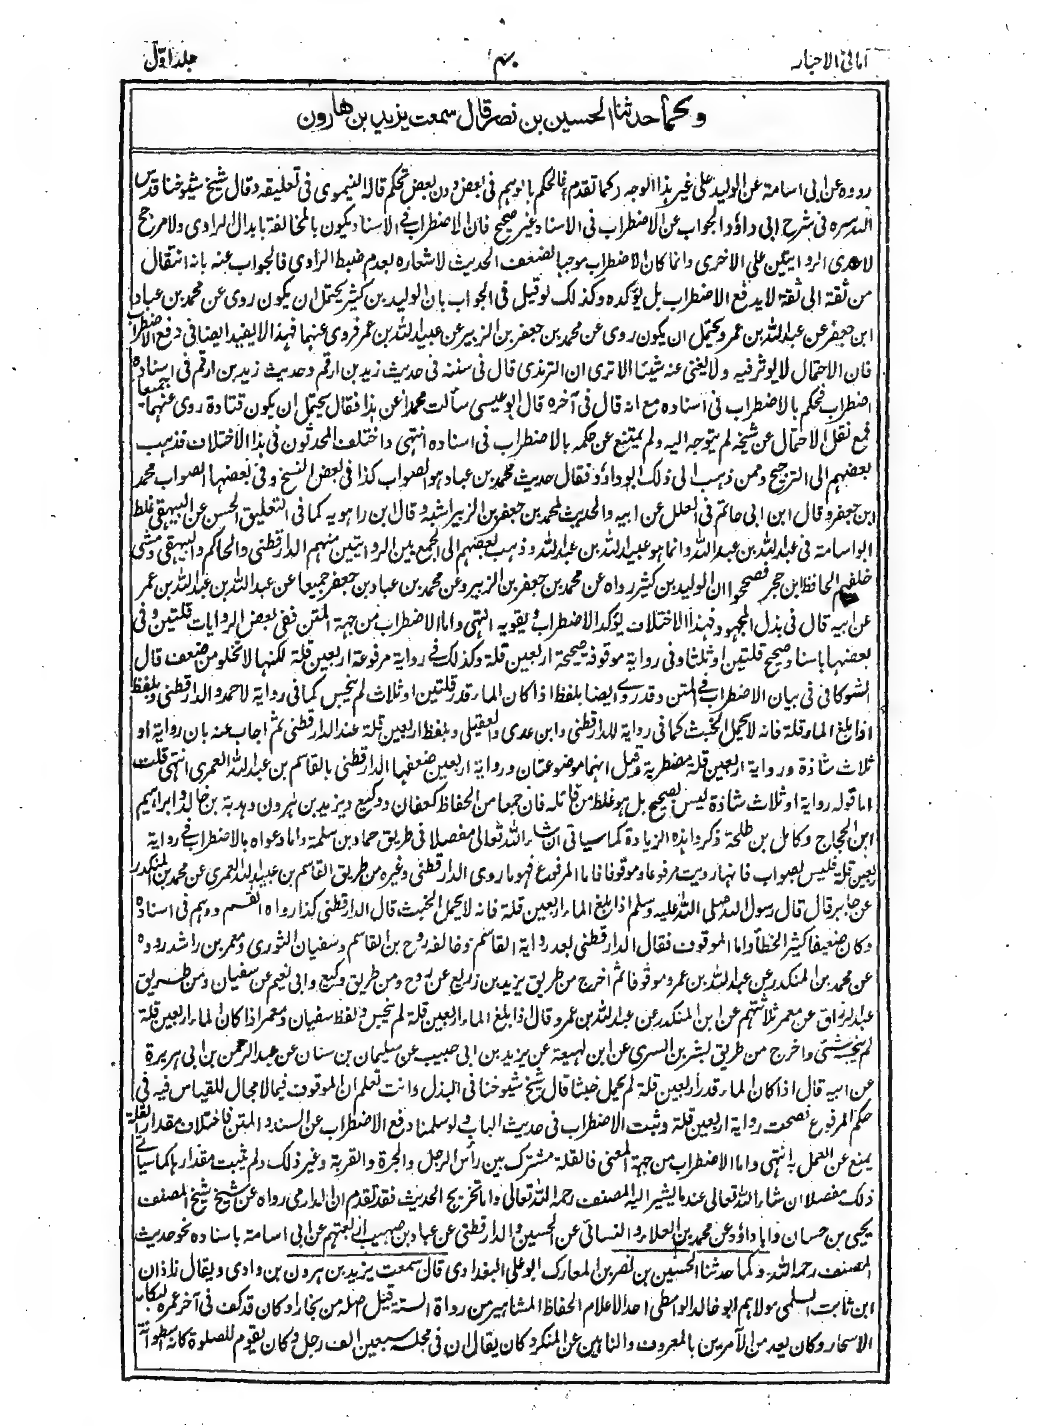 امانی الاحبار جلد اول
وكما حدثنا الحسين بن نصر قال سمعت يزيد بن هارون
رووه عن ابى اسامة عن الوليد على غير هذا الوجه كما تقدم فالحكم بالوهم فى بعض دون بعض تحكم قاله النيموى فى تعليقه وقال شيخ شيوخنا قدس
الله سره فى شرح ابى داؤد الجواب عن الاضطراب فى الاسناد غير صحيح فان الاضطراب فى الاسناد يكون بالمخالفة بابدال الراوى ولا مرجح
لاحدى الروايتين على الاخرى وانما كان الاضطراب موجبا لضعف الحديث لاشعاره لعدم ضبط الراوى فالجواب عنه بانه انتقال
من ثقة الى ثقة لا يدفع الاضطراب بل يؤكده وكذلك لو قيل فى الجواب بان الوليد بن كثير يحتمل ان يكون روى عن محمد بن عباد
ابن جعفر عن عبد الله بن عمر ويحتمل ان يكون روى عن محمد بن جعفر بن الزبير عن عبيد الله بن عمر فروى عنهما فهذا لا يفيد ايضا فى دفع الاضطراب
فان الاحتمال لا يوثر فيه ولا يغنى عنه شيئا الا ترى ان الترمذى قال فى سننه فى حديث زيد بن ارقم وحديث زيد بن ارقم فى اسناده
اضطراب فحكم بالاضطراب فى اسناده مع انه قال فى آخره قال ابو عيسى سألت محمدا عن هذا فقال يحتمل ان يكون قتادة روى عنهما جميعا
فمع نقل الاحتمال عن شيخه لم يتوجه اليه ولم يمتنع عن حكمه بالاضطراب فى اسناده انتهى واختلف المحدثون فى هذا الاختلاف فذهب
بعضهم الى الترجيح وممن ذهب الى ذلك ابو داؤد فقال حديث محمد بن عباد هو الصواب كذا فى بعض النسخ وفى بعضها الصواب محمد
ابن جعفر وقال ابن ابى حاتم فى العلل عن ابيه والحديث لمحمد بن جعفر بن الزبير اشبه وقال ابن راهويه كما فى التعليق الحسن عن البيهقى غلط
ابو اسامة فى عبد الله بن عبد الله وانما هو عبيد الله بن عبد الله وذهب بعضهم الى الجمع بين الروايتين منهم الدارقطنى والحاكم والبيهقى ومشى
خلفهم الحافظ ابن حجر فصححوا ان الوليد بن كثير رواه عن محمد بن جعفر بن الزبير وعن محمد بن عباد بن جعفر جميعا عن عبد الله بن عبد الله بن عمر
عن ابيه قال فى بذل المجهود فهذا الاختلاف يؤكد الاضطراب ويقويه انتهى واما الاضطراب من جهة المتن ففى بعض الروايات قلتين وفى
بعضها باسناد صحيح قلتين او ثلثا وفى رواية موقوفة صحيحة اربعين قلة وكذلك فى رواية مرفوعة اربعين قلة لكنها لا تخلو من ضعف قال
الشوكانى فى بيان الاضطراب فى المتن وقد روى ايضا بلفظ اذا كان الماء قدر قلتين او ثلاث لم ينجس كما فى رواية لاحمد والدارقطنى وبلفظ
اذا بلغ الماء قلة فانه لا يحمل الخبث كما فى رواية للدارقطنى وابن عدى والعقيلى وبلفظ اربعين قلة عند الدارقطنى ثم اجاب عنه بان رواية او
ثلاث شاذة ورواية اربعين قلة مضطربة وقيل انهما موضوعتان ورواية اربعين ضعفها الدارقطنى بالقاسم بن عبد الله العمرى انتهى قلت
اما قوله رواية او ثلاث شاذة ليس بصحيح بل هو غلط من قائله فان جمعا من الحفاظ كعفان ووكيع ويزيد بن هرون وهدبة بن خالد وابراهيم
ابن الحجاج وكامل بن طلحة ذكروا هذه الزيادة كما سياتى ان شاء الله تعالى مفصلا فى طريق حماد بن سلمة واما دعواه بالاضطراب فى رواية
اربعين قلة فليس بصواب فانها رويت مرفوعا وموقوفا فاما المرفوع فهو ما روى الدارقطنى وغيره من طريق القاسم بن عبيد الله العمرى عن محمد بن المنكدر
عن جابر قال قال رسول الله صلى الله عليه وسلم اذا بلغ الماء اربعين قلة فانه لا يحمل الخبث قال الدارقطنى كذا رواه القسم ووهم فى اسناده
وكان ضعيفا كثير الخطأ واما الموقوف فقال الدارقطنى بعد رواية القاسم وخالفه روح بن القاسم وسفيان الثورى ومعمر بن راشد رووه
عن محمد بن المنكدر عن عبد الله بن عمرو موقوفا ثم اخرج من طريق يزيد بن زريع عن روح ومن طريق وكيع وابى نعيم عن سفيان ومن طريق
عبد الرزاق عن معمر ثلاثتهم عن ابن المنكدر عن عبد الله بن عمرو قال اذا بلغ الماء اربعين قلة لم ينجس ولفظ سفيان ومعمر اذا كان الماء اربعين قلة
لم ينجسه شئ واخرج من طريق بشر بن السرى عن ابن لهيعة عن يزيد بن ابى حبيب عن سليمان بن سنان عن عبد الرحمن بن ابى هريرة
عن ابيه قال اذا كان الماء قدر اربعين قلة لم يحمل خبثا قال شيخ شيوخنا فى البذل وانت تعلم ان الموقوف فيما لا مجال للقياس فيه فى
حكم المرفوع فصحت رواية اربعين قلة وثبت الاضطراب فى حديث الباب ولو سلمنا دفع الاضطراب عن السند والمتن فاختلاف مقدار القلة
يمنع عن العمل به انتهى واما الاضطراب من جهة المعنى فالقلة مشترك بين رأس الرجل والجرة والقربة وغير ذلك ولم يثبت مقدارها كما سياتى
ذلك مفصلا ان شاء الله تعالى عند ما يشير اليه المصنف رحمه الله تعالى واما تخريج الحديث فقد تقدم ان الدارمى رواه عن شيخ شيخ المصنف
يحيى بن حسان وابا داؤد عن محمد بن العلاء والنسائى عن الحسين والدارقطنى عن عباد بن صهيب اربعتهم عن ابى اسامة باسناده نحو حديث
المصنف رحمه الله. وكما حدثنا الحسين بن نصر بن المعارك ابو على البغدادى قال سمعت يزيد بن هرون بن وادى ويقال زاذان
ابن ثابت السلمى مولاهم ابو خالد الواسطى احد الاعلام الحفاظ المشاهير من رواة الستة قيل اصله من بخارا وكان قد كف فى آخر عمره لبكاء
الاسحار وكان يعد من الآمرين بالمعروف والناهين عن المنكر وكان يقال ان فى مجلسه سبعين الف رجل وكان يقوم للصلوة كانه اسطوانة